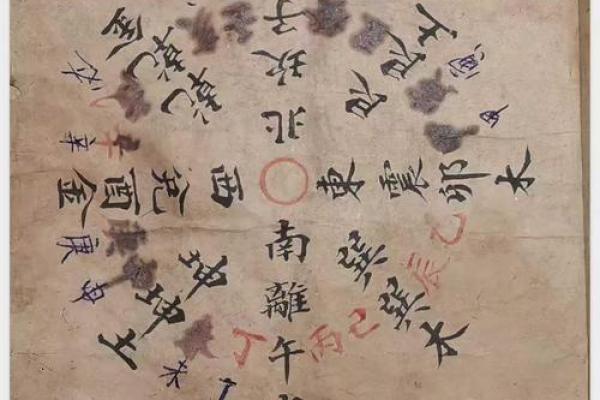 北坎子
南離午
東震卯木
西兌酉金
乾乾金
艮艮土
巽巽木
坤坤土
乙
辰
巳
丙
丁
未
申
庚
辛
戌
寅